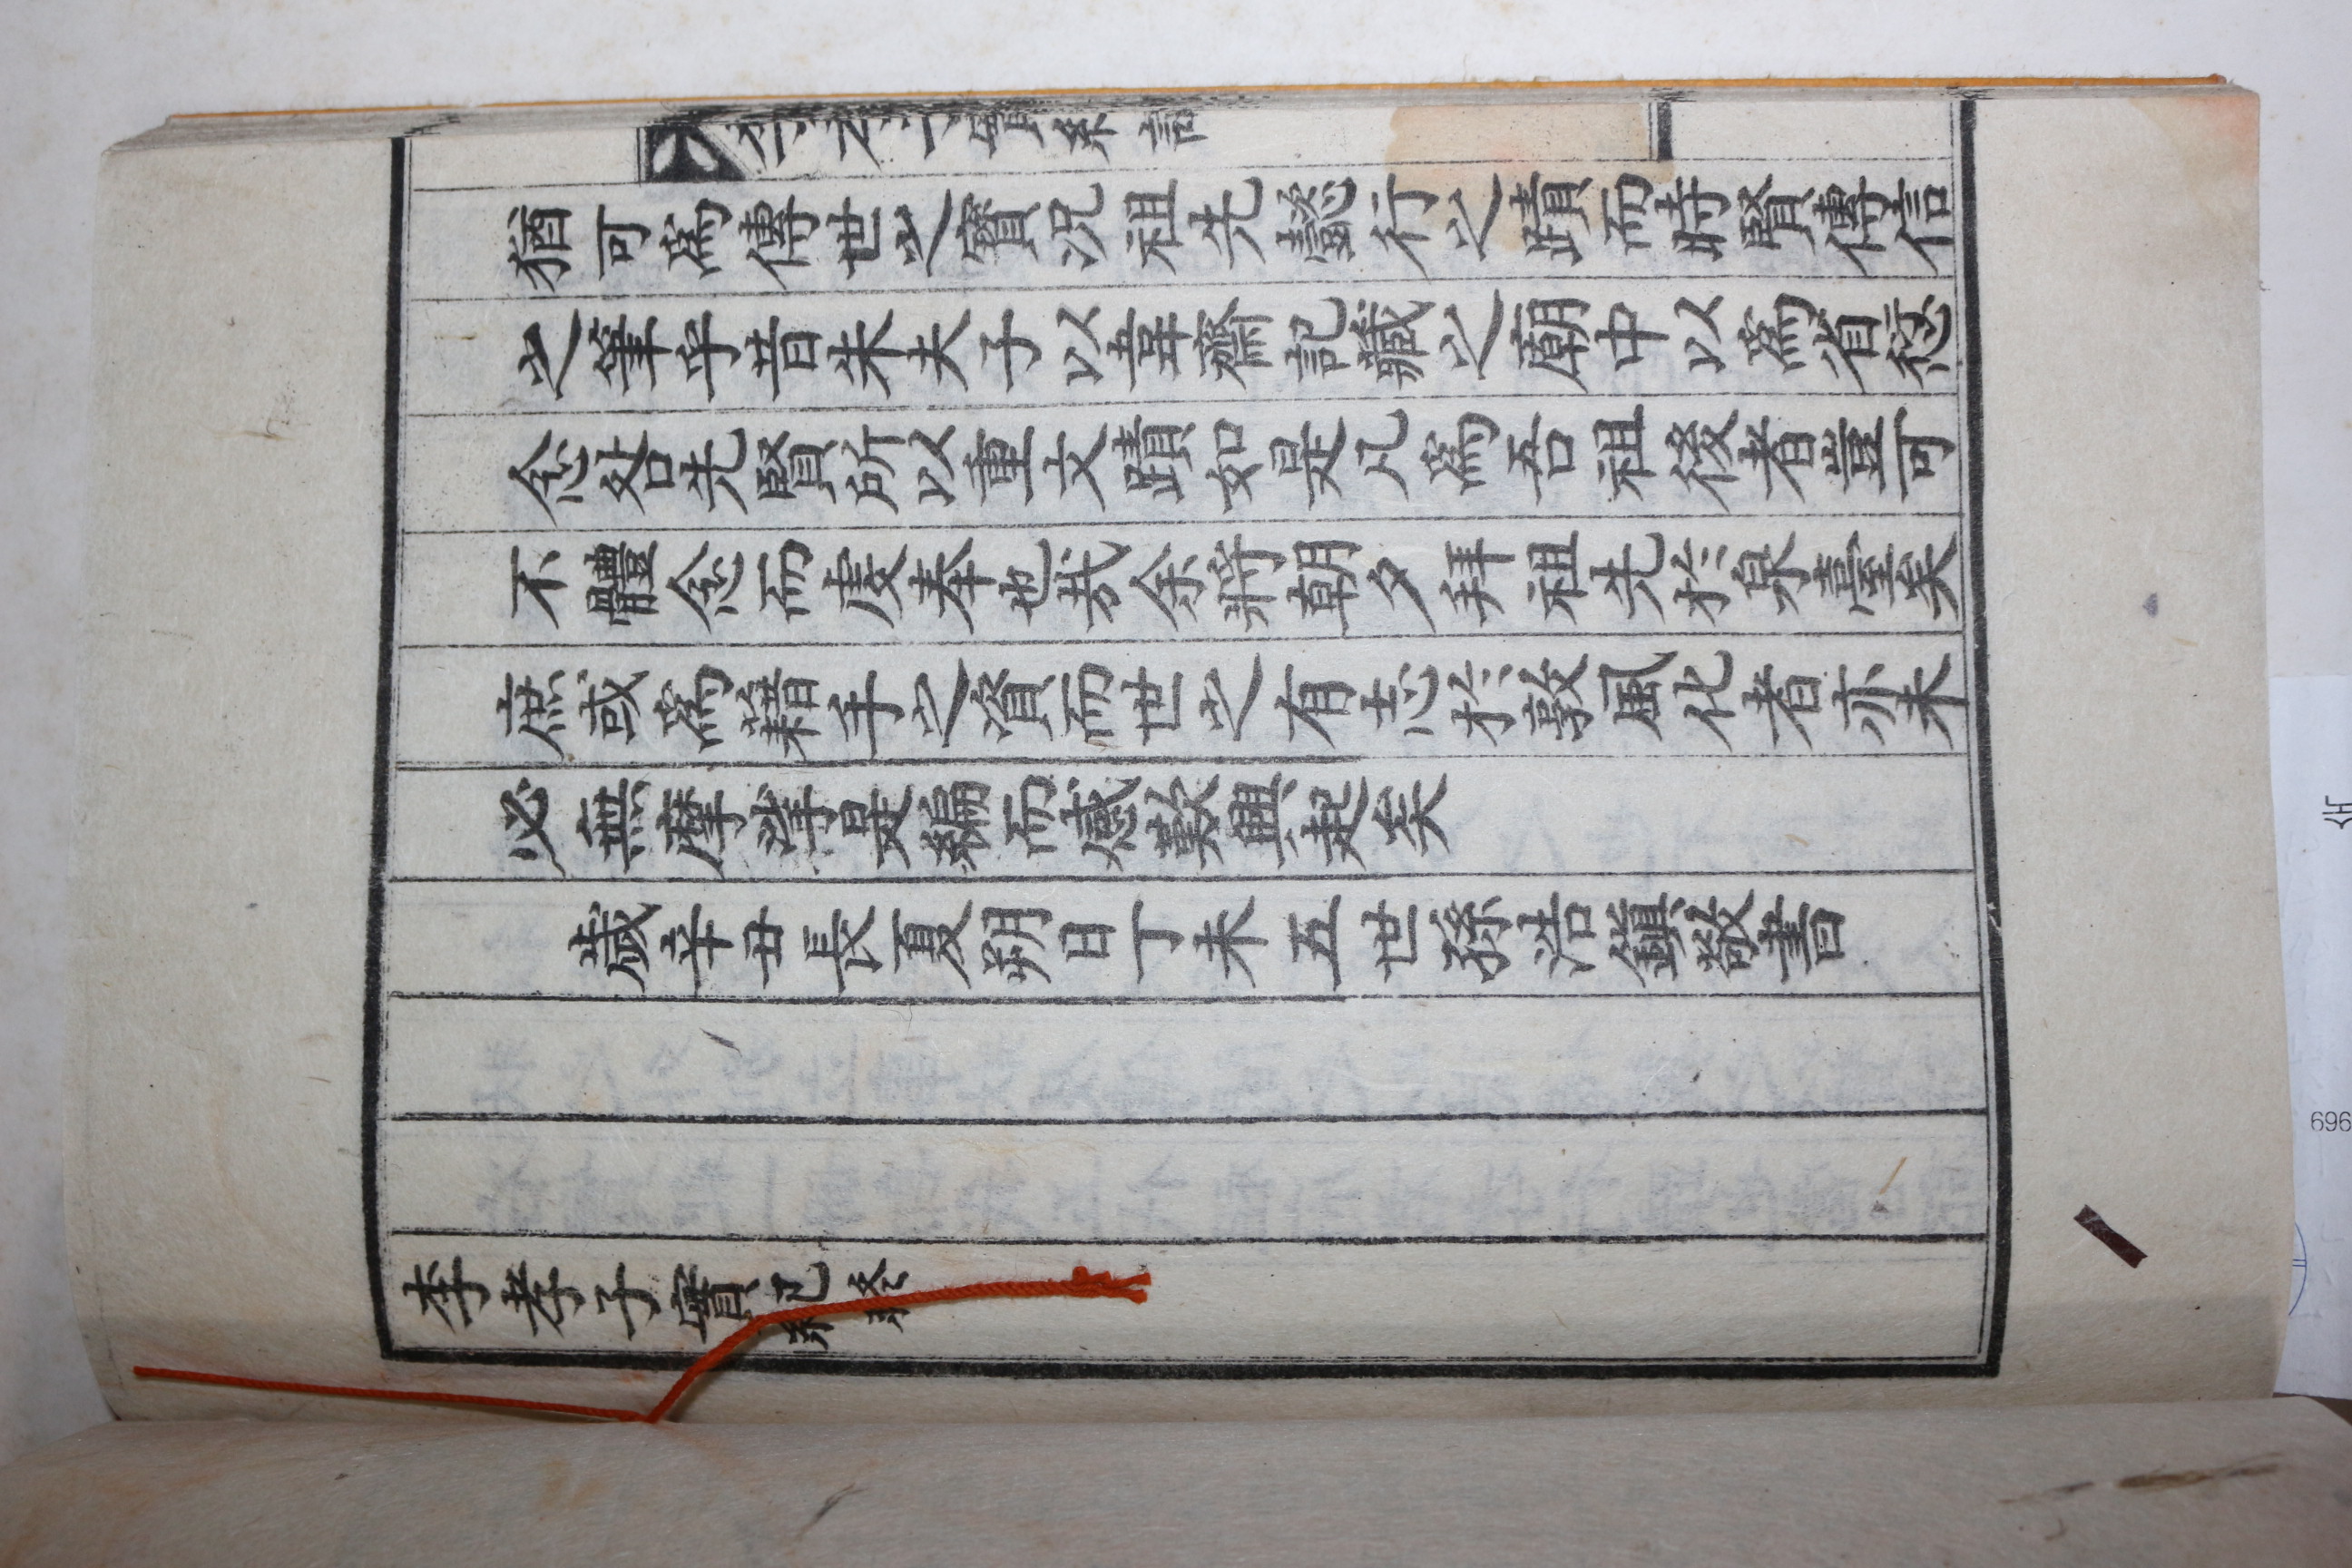 李孝子實紀
猶可爲傳世之寶况祖先懿行之蹟而時賢傳信
之筆乎昔朱夫子以韋齋記藏之廟中以爲省愆
念咎先賢所以重文蹟如是凡爲吾祖後者豈可
不體念而虔奉也哉余將朝夕拜祖先於泉臺矣
庶或爲藉手之資而世之有志於敦風化者亦未
必無摩挲是編而感歎興起矣
歲辛丑長夏朔日丁未五世孫浩鎭敬書
李孝子實紀終
969
숙